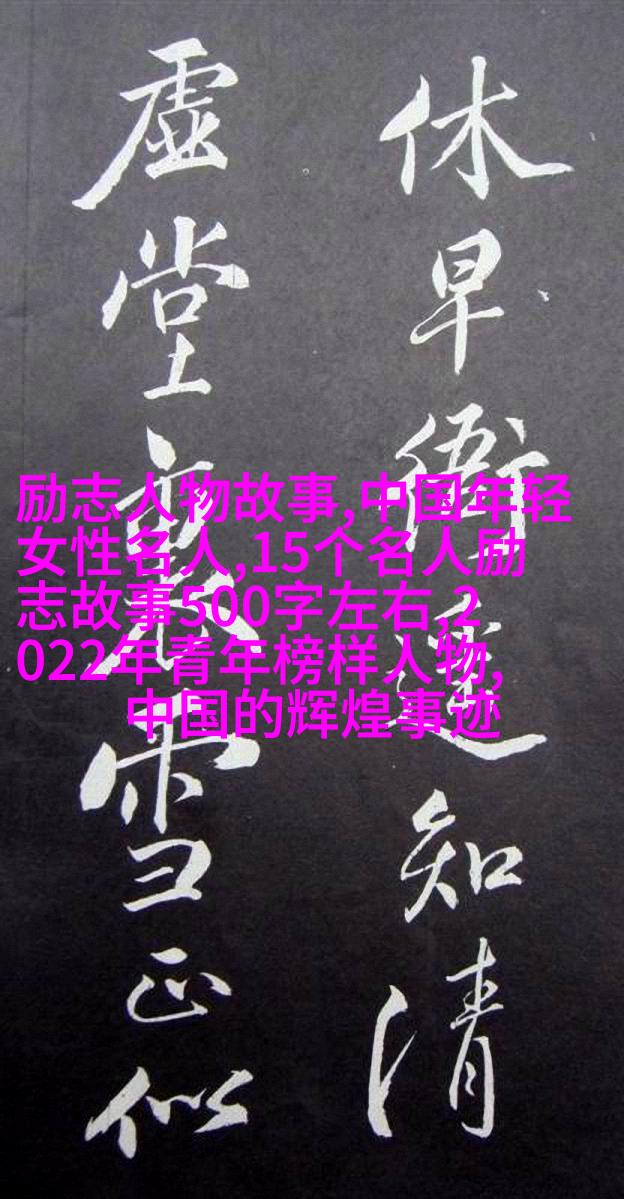 休早衙知清
虚堂雪正似
励志人物故事,中国年轻
女性名人,15个名人励
志故事500字左右,2
022年青年榜样人物,
中国的辉煌事迹